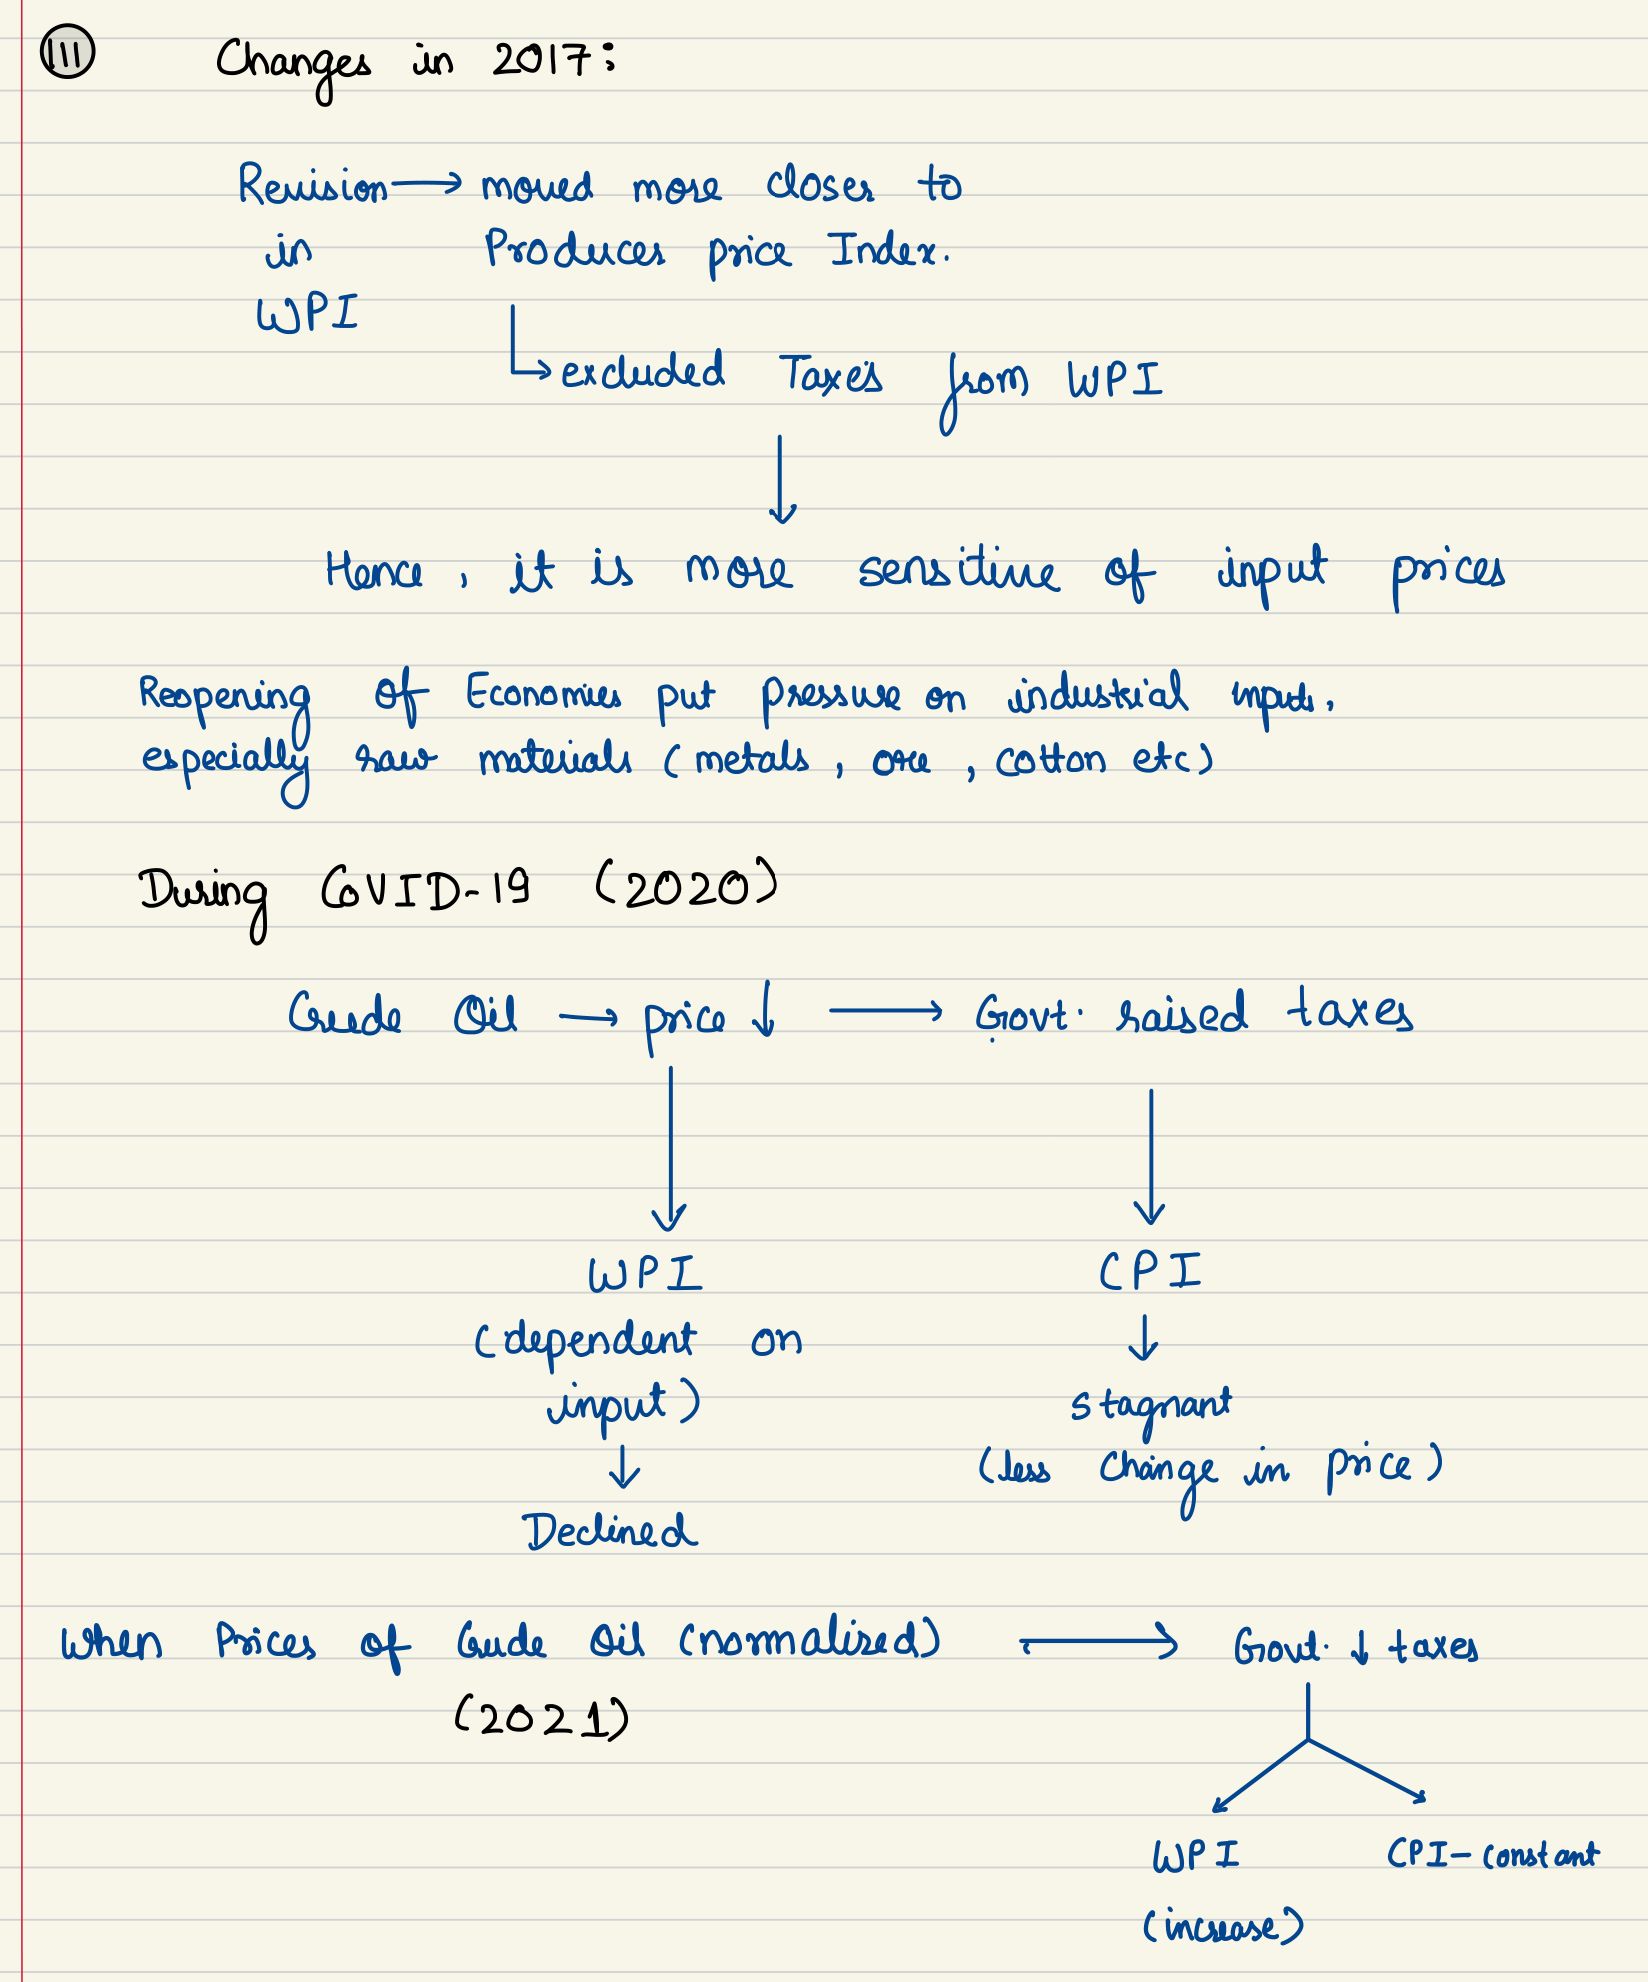 III Changes in 2017:
Revision → moved more closer to
in Producer price Index.
WPI
↳ excluded Taxes from WPI
↓
Hence, it is more sensitive of input prices
Reopening of Economies put pressure on industrial inputs,
especially raw materials (metals, ore, cotton etc)
During COVID-19 (2020)
Crude Oil → price ↓ → Govt. raised taxes
↓ ↓
WPI CPI
(dependent on ↓
input) stagnant
↓ (less change in price)
Declined
When Prices of Crude Oil (normalized) → Govt. ↓ taxes
(2021)
WPI CPI - constant
(increase)